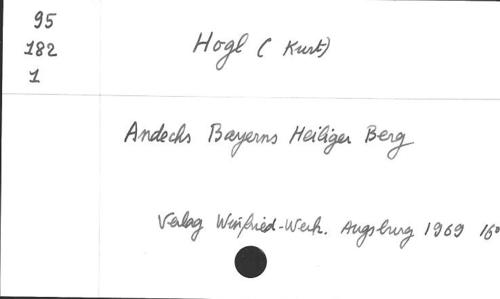 95
182
1
Hogl ( Kurt)
Andechs Bayerns Heiliger Berg
Verlag Winfried-Werk. Augsburg 1969 16°